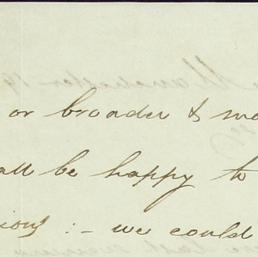 or broader & mo
all be happy to
ions :- we could